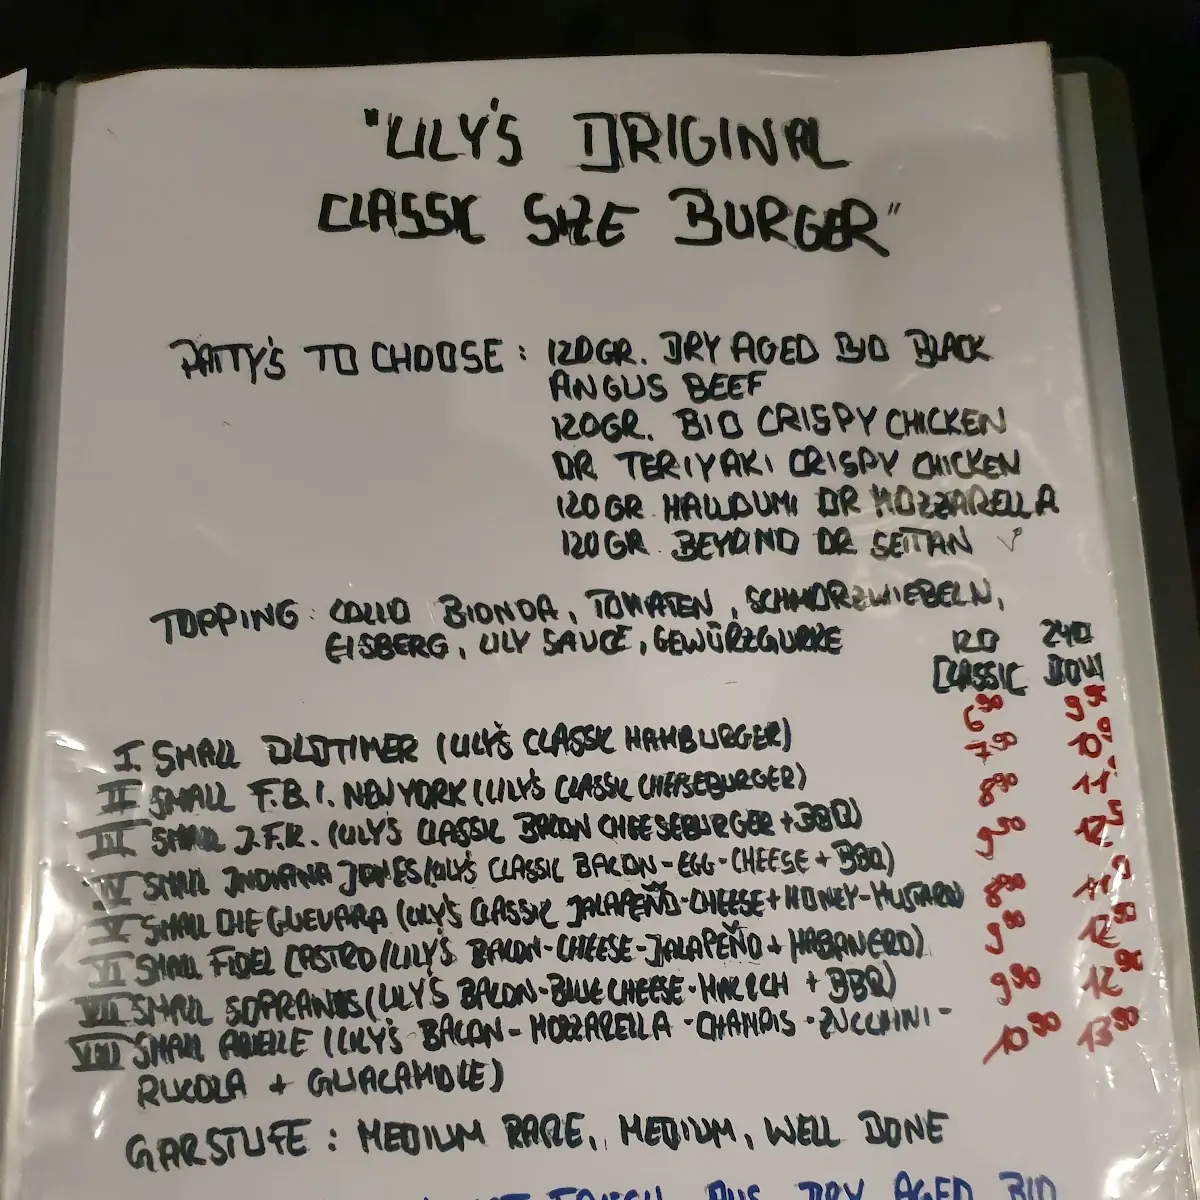 "LILY'S ORIGINAL
CLASSIC SIZE BURGER"
PATTY'S TO CHOOSE : 120GR. DRY AGED BIO BLACK
ANGUS BEEF
120GR. BIO CRISPY CHICKEN
OR TERIYAKI CRISPY CHICKEN
120GR HALLOUMI OR MOZZARELLA
120GR. BEYOND OR SEITAN
TOPPING : LOLLO BIONDA, TOMATEN, SCHMORZWIEBELN,
EISBERG, LILY SAUCE, GEWÜRZGURKE
120 240
CLASSIC DOUBL
I. SMALL OLDTIMER (LILY'S CLASSIC HAMBURGER) 6 90 9 90
II SMALL F.B.I. NEW YORK (LILY'S CLASSIC CHEESEBURGER) 7 90 10 9
III SMALL J.F.K. (LILY'S CLASSIC BACON CHEESEBURGER + BBQ) 8 90 11
IV SMALL INDIANA JONES (LILY'S CLASSIC BACON-EGG-CHEESE + BBQ) 9 90 12
V SMALL CHE GUEVARA (LILY'S CLASSIC JALAPEÑO-CHEESE + HONEY-MUSTARD) 8 90
VI SMALL FIDEL CASTRO (LILY'S BACON-CHEESE-JALAPEÑO + HABANERO) 9 90 12 90
VII SMALL SOPRANOS (LILY'S BACON-BLUE CHEESE- + BBQ) 9 90 12 90
VIII SMALL ARIELLE (LILY'S BACON-MOZZARELLA-CHAMPIS-ZUCCHINI- 10 90 13 90
RUCOLA + GUACAMOLE)
GARSTUFE : MEDIUM RARE, MEDIUM, WELL DONE
AUS DRY AGED BIO